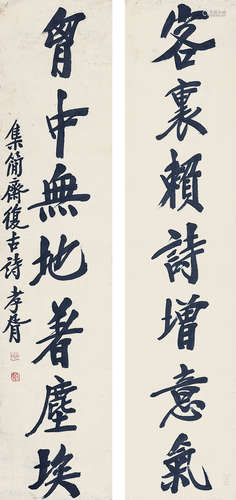 客裏賴詩增意氣
胷中無地著塵埃
集簡齋復古詩孝胥